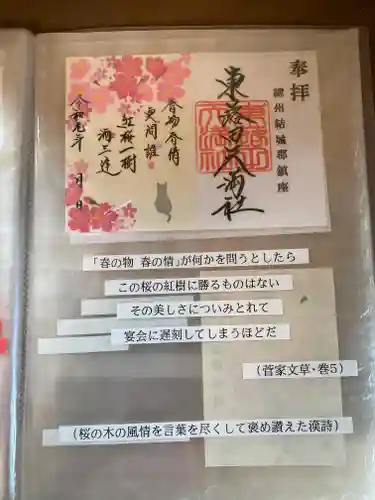 奉拝
総州結城郡鎮座
東蕗田天満社
春物春情
更問誰
紅桜一樹
酒三遅
令和元年 月 日
「春の物 春の情」が何かを問うとしたら
この桜の紅樹に勝るものはない
その美しさについみとれて
宴会に遅刻してしまうほどだ
(菅家文草・巻5)
(桜の木の風情を言葉を尽くして褒め讃えた漢詩)